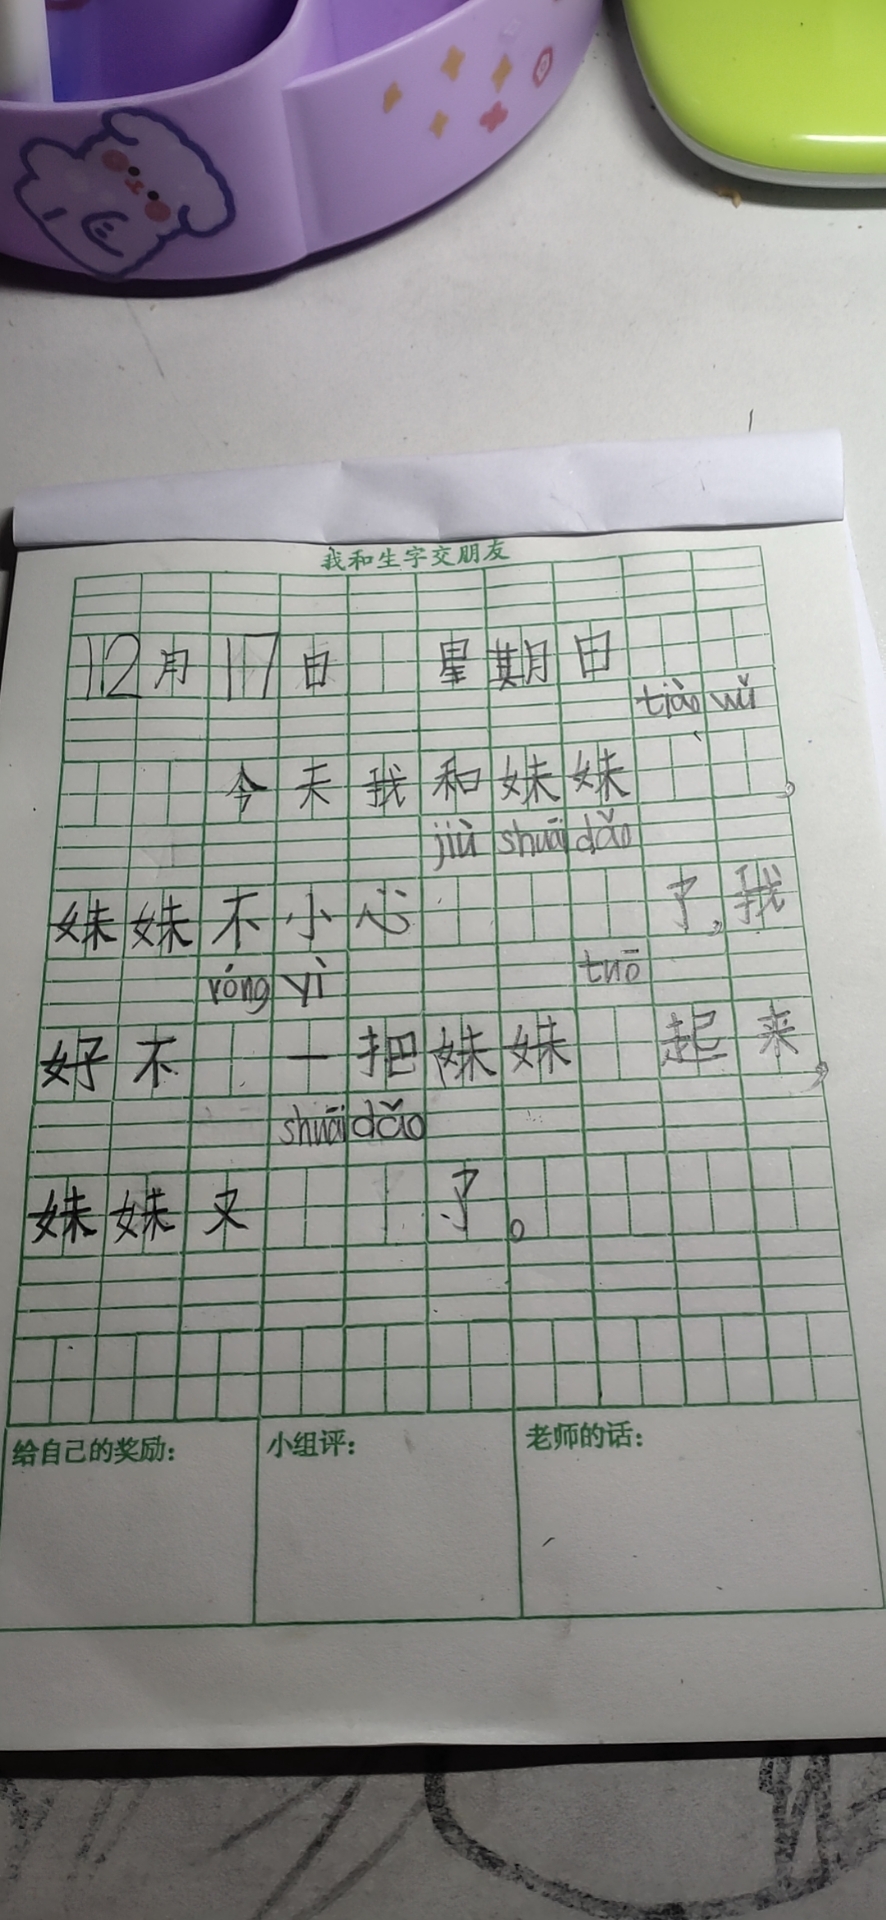 我和生字交朋友
12月17日 星期日
tiào wǔ
今天我和妹妹 ，
jiù shuāi dǎo
妹妹不小心 了，我
róng yì tuō
好不 一把妹妹 起来，
shuāi dǎo
妹妹又 了。
给自己的奖励： 小组评： 老师的话：